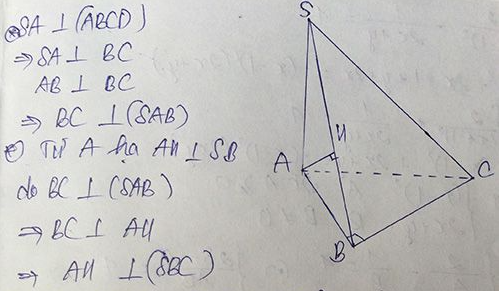 ⊕ SA ⊥ (ABCD)
⇒ SA ⊥ BC
AB ⊥ BC
⇒ BC ⊥ (SAB)
⊕ Từ A hạ AH ⊥ SB
do BC ⊥ (SAB)
⇒ BC ⊥ AH
⇒ AH ⊥ (SBC)
S
H
A
C
B